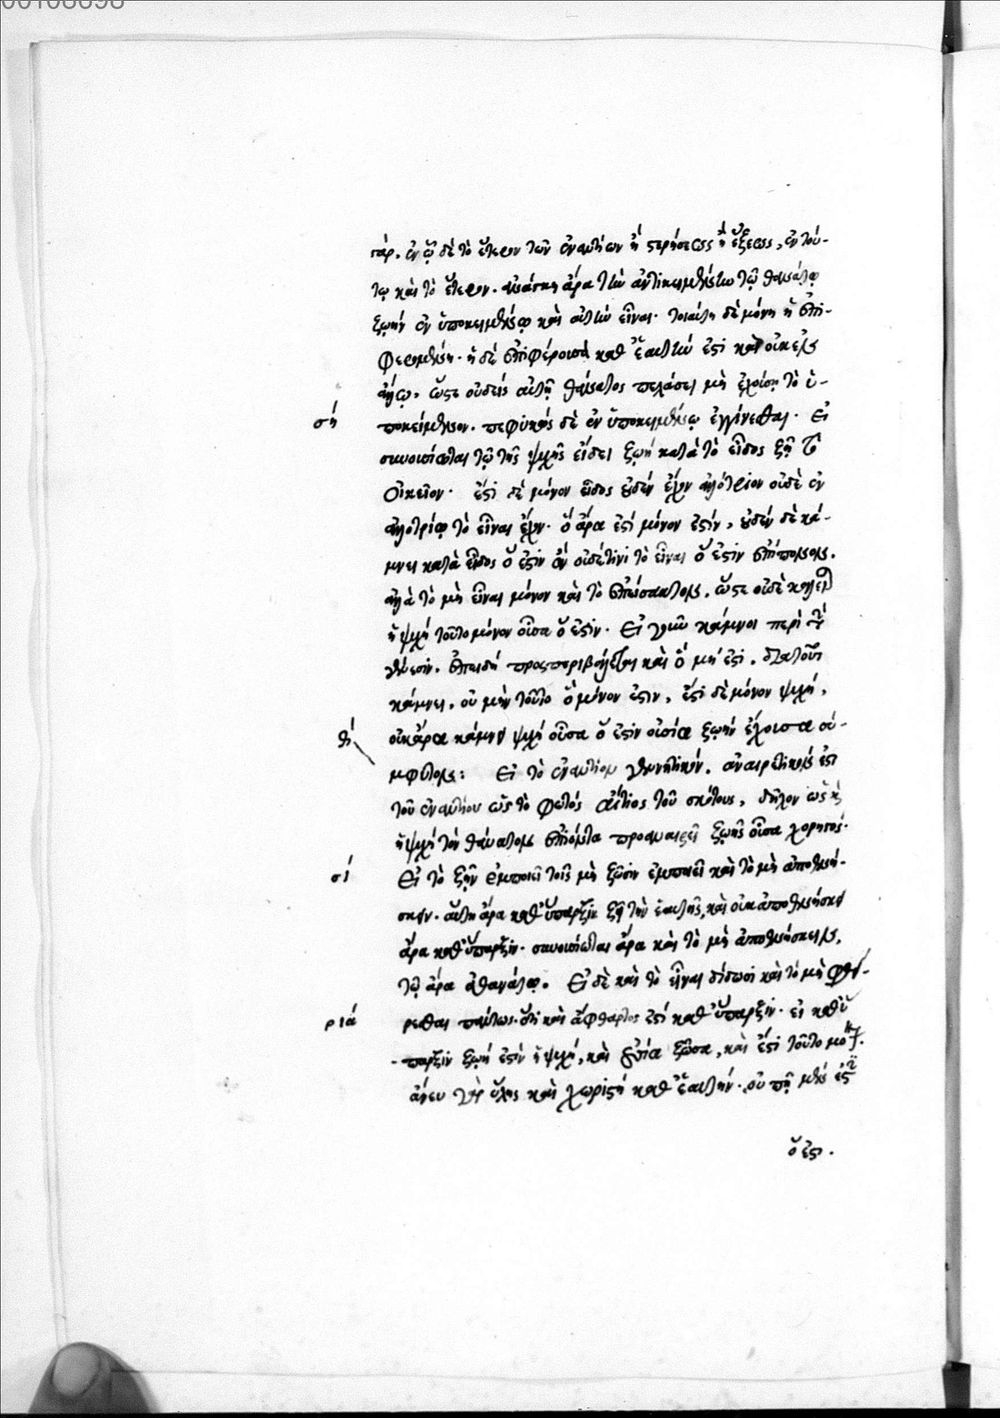 γάρ. ἐν ᾧ δὲ τὸ ἕτερον τῶν ἐναντίων ἢ στερήσεως ἢ ἕξεως, ἐν τού-
τῳ καὶ τὸ ἕτερον. ἀνάγκη ἄρα τὴν ἀντικειμένην τῷ θανάτῳ
ζωὴν ἐν ὑποκειμένῳ καὶ αὐτὴν εἶναι. τοιαύτη δὲ μόνη ἡ ἐπι-
φερομένη. ἡ δὲ ἐπιφέρουσα καθ' ἑαυτήν ἐστι καὶ οὐκ ἐν
ἄλλῳ. ὥστε οὐδεὶς αὐτῇ θάνατος πελάσει μὴ ἐχούσῃ τὸ ὑ-
ποκείμενον. πεφυκὼς δὲ ἐν ὑποκειμένῳ ἐγγίνεσθαι. Εἰ
συνουσίωται τῷ τῆς ψυχῆς εἴδει ζωὴ κατὰ τὸ εἶδος ζῇ τὸ
οἰκεῖον. ἔστι δὲ μόνον εἶδος οὐδὲν ἔχον ἀλλότριον οὐδὲ ἐν
ἀλλοτρίῳ τὸ εἶναι ἔχον. ὃ ἄρα ἐστὶ μόνον ἐστίν, οὐδὲν δὲ κά-
μνει κατὰ εἶδος ὅ ἐστιν ἐν οὐδέτινι τὸ εἶναι ὅ ἐστιν ἐπίπονον.
ἀλλὰ τὸ μὴ εἶναι μόνον καὶ τὸ ἐπείσακτον. ὥστε οὐδὲ
ἡ ψυχὴ τοῦτο μόνον οὖσα ὅ ἐστιν. Εἰ γοῦν κάμνοι περὶ τὴν
γένεσιν. ἐπειδὴ προσπεριβάλλεται καὶ ὃ μή ἐστι. διὰ τοῦτο
κάμνει. οὐ μὴν τοῦτο ὃ μόνον ἐστιν, ἔστι δὲ μόνον ψυχή.
οὐκ ἄρα κάμνει ψυχὴ οὖσα ὅ ἐστιν οὐσία ζωὴν ἔχουσα σύ-
μφυτον: Εἰ τὸ ἐναντίου γεννητικόν. ἀναιρετικόν ἐστι
τοῦ ἐναντίου ὡς τὸ φωτὸς αἴτιος τοῦ σκότους, δῆλον ὡς καὶ
ἡ ψυχὴ τὸν θάνατον ἐπιόντα προαναιρεῖ ζωῆς οὖσα χορηγός.
Εἰ τὸ ζῆν ἐμποιεῖ τοῖς μὴ ζῶσιν ἐμποιεῖ καὶ τὸ μὴ ἀποθνή-
σκειν. αὕτη ἄρα καθ' ὕπαρξιν ζῇ τὴν ἑαυτῆς, καὶ οὐκ ἀποθνήσκει
ἄρα καθ' ὕπαρξιν. συνουσίωται ἄρα καὶ τὸ μὴ ἀποθνήσκειν.
τῷ ἄρα ἀθανάτῳ. Εἰ δὲ καὶ τὸ εἶναι δίδωσι καὶ τὸ μὴ φθεί-
ρεσθαι πάντως. ὅτι καὶ ἄφθαρτός ἐστι καθ' ὕπαρξιν. εἰ καθ' ὕ-
-παρξιν ζωή ἐστιν ἡ ψυχή, καὶ οὐσία ζῶσα, καὶ ἔστι τοῦτο μόνον.
ἄνευ γὰρ ὕλης καὶ χωριστὴ καθ' ἑαυτήν. οὐ πῇ μέν ἐστιν
ὅ ἐστι.
σή
θί
σί
ριά